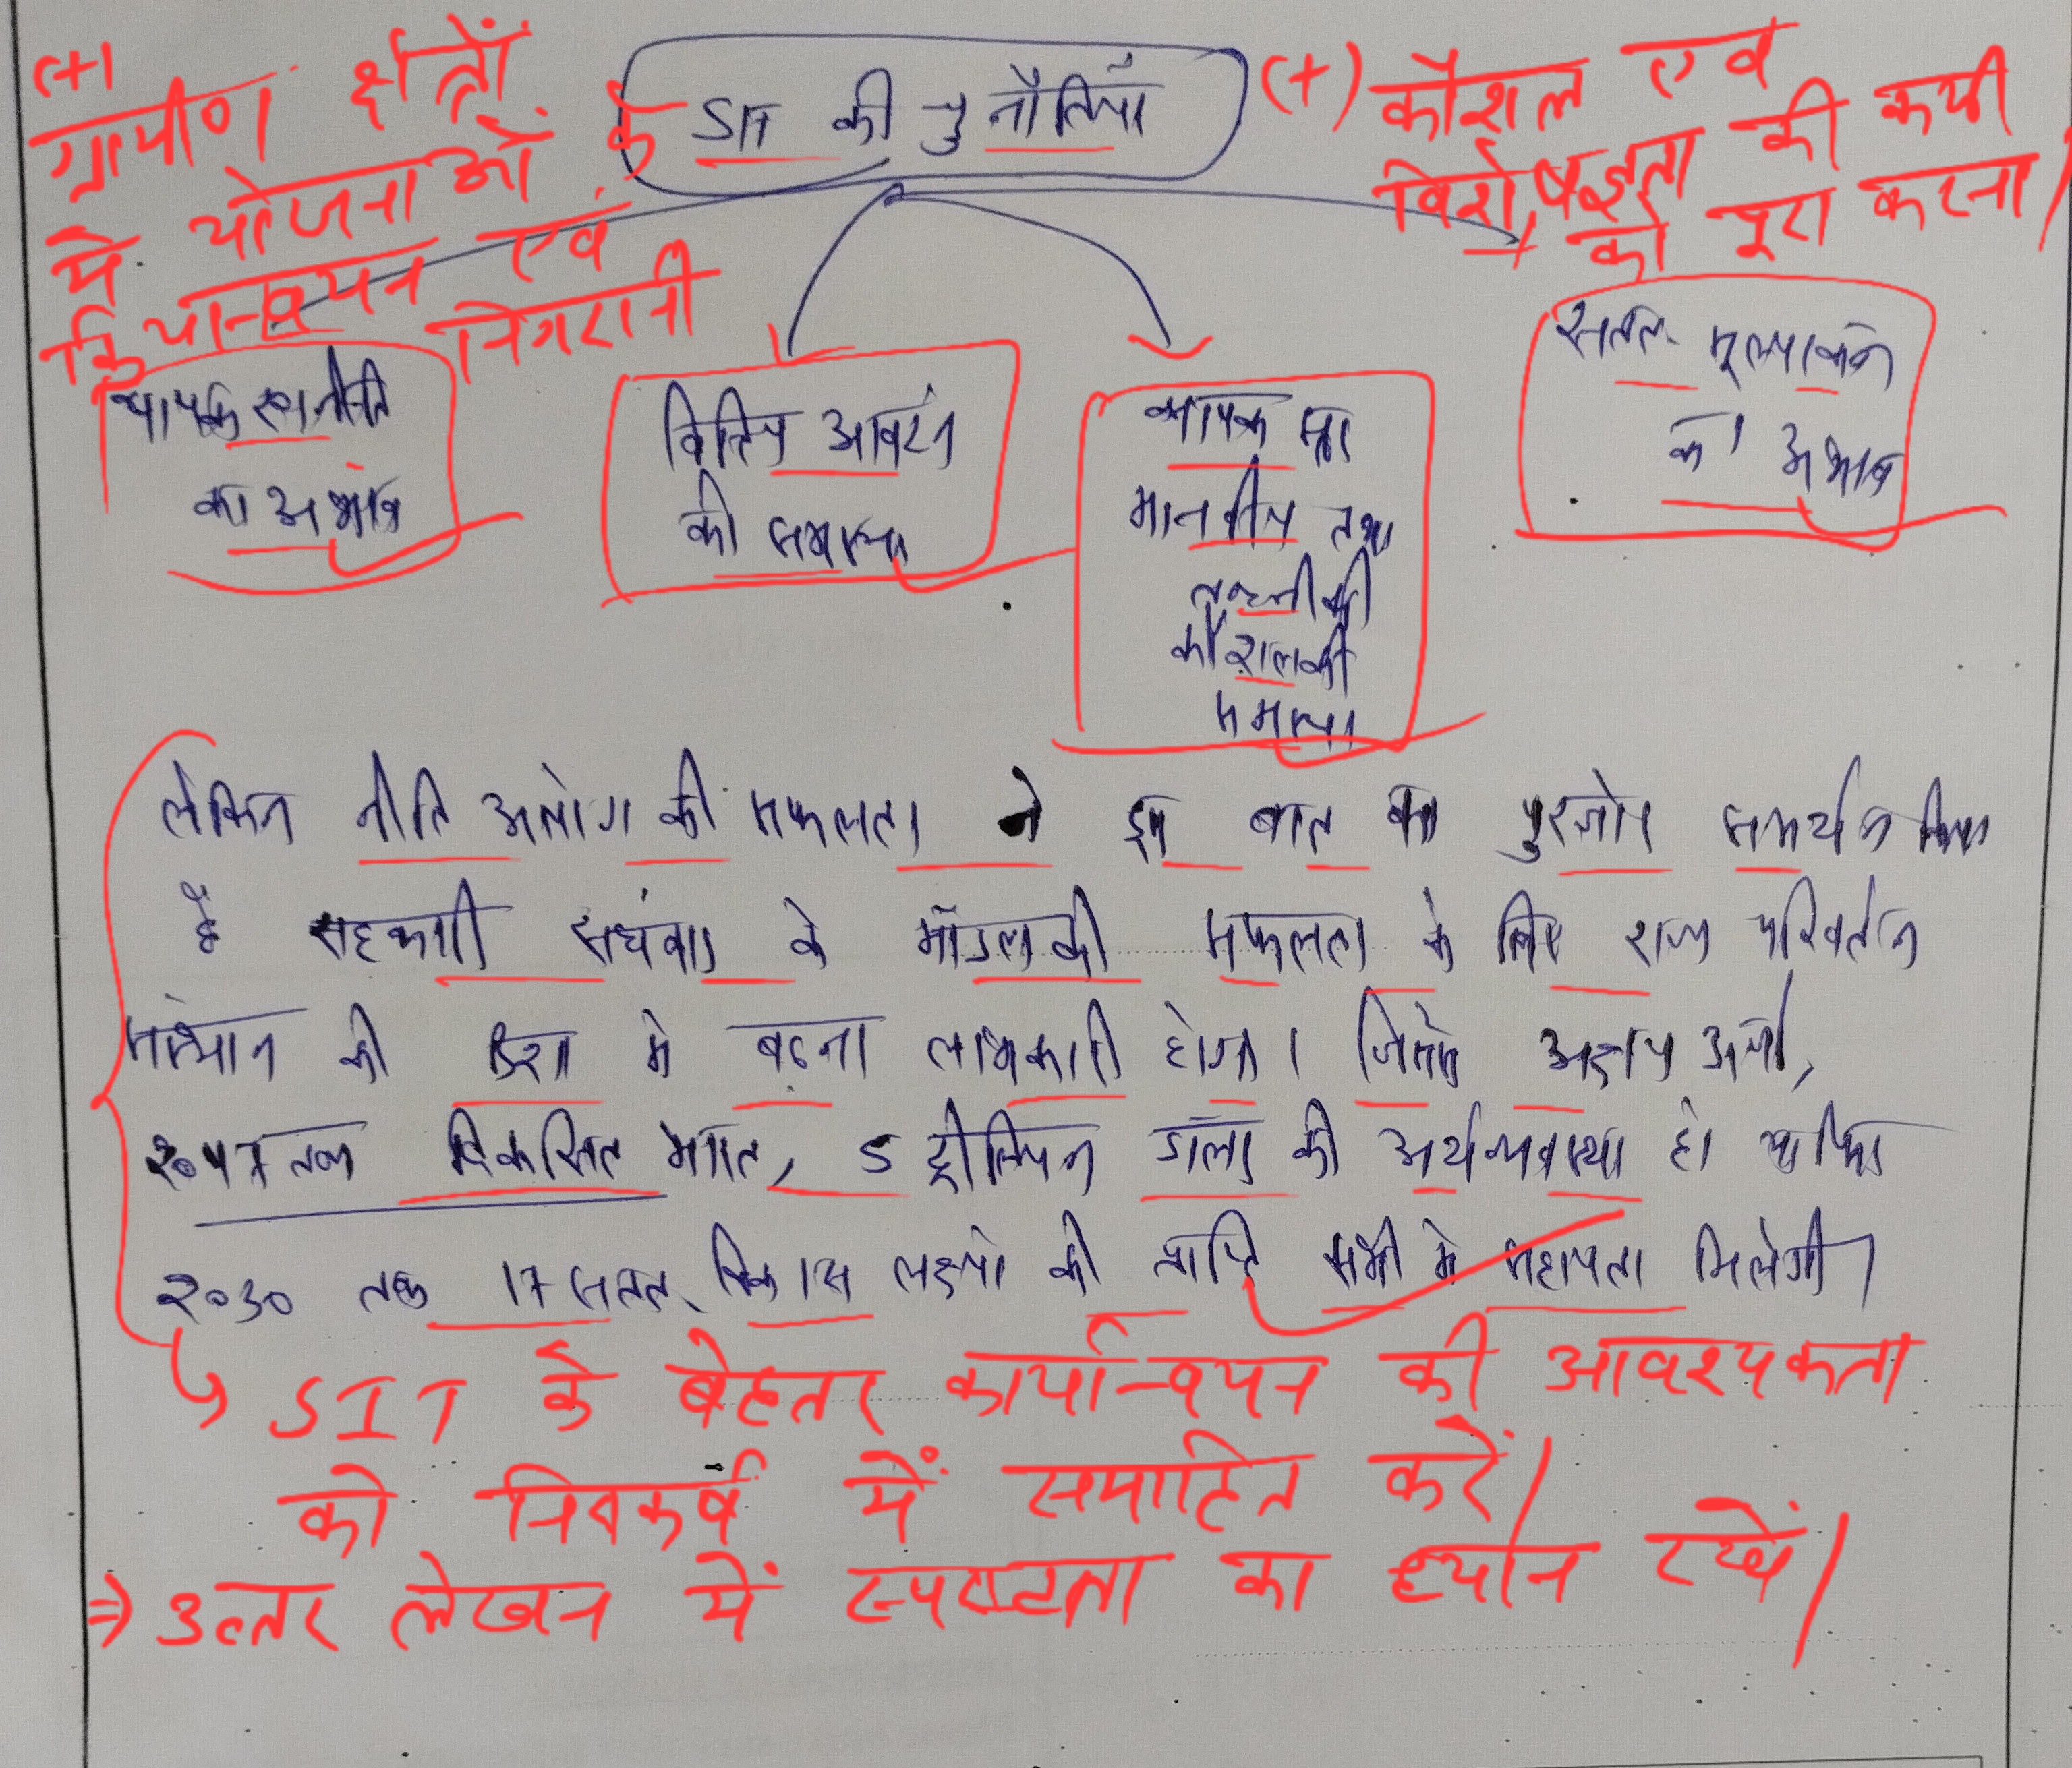 (+)
ग्रामीण क्षेत्रों के
में योजनाओं
क्रियान्वयन एवं
निगरानी
SIT की चुनौतियाँ
(+) कौशल एवं
विशेषज्ञता की कमी
को पूरा करना।
व्यापक रणनीति
का अभाव
वित्तिय आवंटन
की समस्या
व्यापक
मानवीय तथा
तकनीकी
कौशल की
समस्या
सतत मूल्यांकन
का अभाव
लेकिन नीति आयोग की सफलता ने इस बात का पुरजोर समर्थन किया
है सहकारी संघवाद के मॉडल की सफलता के लिए राज्य परिवर्तन
संस्थान की दिशा मे बढना लाभकारी होगा। जिससे अक्षय ऊर्जा,
२०४७ तक विकसित भारत, 5 ट्रीलियन डॉलर की अर्थव्यवस्था हो
२०३० तक 17 सतत विकास लक्ष्यो की प्राप्ति सभी मे सहायता मिलेगी।
SIT के बेहतर कार्यान्वयन की आवश्यकता
को निष्कर्ष में समाहित करें।
⇒ उत्तर लेखन में स्पष्टता का ध्यान रखें।